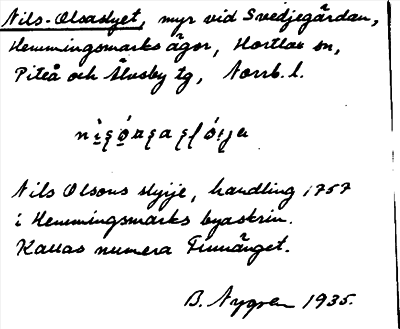 Nils-Olsaslyet, myr vid Svedjegårdan,
Hemmingsmarks ägor, Hortlax sn,
Piteå och Älvsby tg, Norrb. l.
Nils Olsons slyije, handling 1757
i Hemmingsmarks byaskrin.
Kallas numera Finnänget.
B. Nygren 1935.